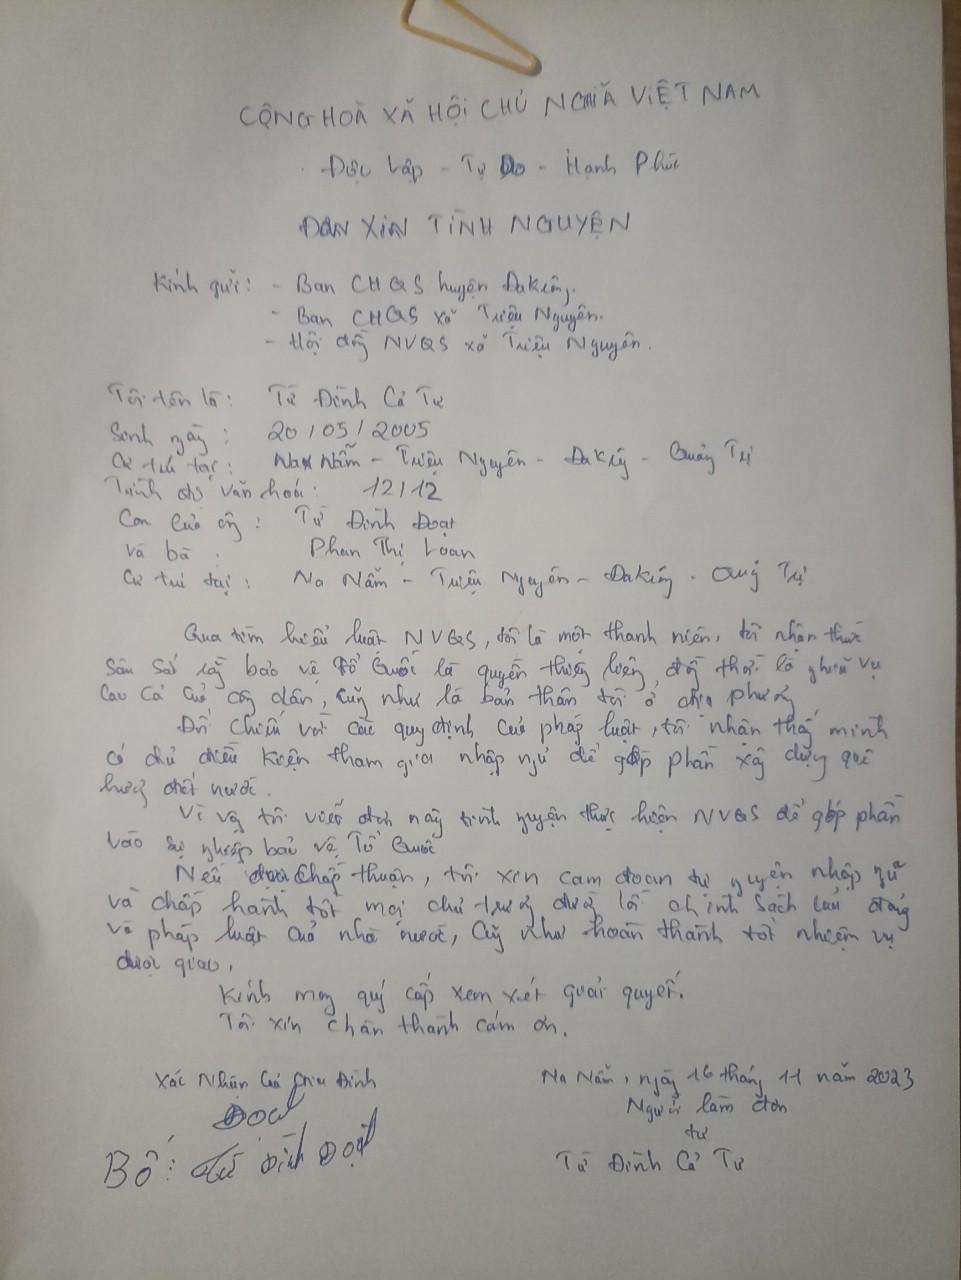 CỘNG HOÀ XÃ HỘI CHỦ NGHĨA VIỆT NAM
Độc lập - Tự Do - Hạnh Phúc
ĐƠN XIN TÌNH NGUYỆN
Kính gửi: - Ban CHQS huyện Đakrông.
- Ban CHQS xã Triệu Nguyên.
- Hội đồng NVQS xã Triệu Nguyên.
Tôi tên là: Từ Đình Cả Tư
Sinh ngày: 20/05/2005
Cư trú tại: Na Nẫm - Triệu Nguyên - Đakrông - Quảng Trị
Trình độ văn hoá: 12/12
Con của ông: Từ Đình Đoạt
và bà: Phan Thị Loan
Cư trú tại: Na Nẫm - Triệu Nguyên - Đakrông - Quảng Trị
Qua tìm hiểu luật NVQS, tôi là một thanh niên, tôi nhận thức
sâu sắc rằng bảo vệ Tổ Quốc là quyền thiêng liêng, đồng thời là nghĩa vụ
cao cả của công dân, cũng như là bản thân tôi ở địa phương
Đối chiếu với các quy định của pháp luật, tôi nhận thấy mình
có đủ điều kiện tham gia nhập ngũ để góp phần xây dựng quê
hương đất nước.
Vì vậy tôi viết đơn này tình nguyện thực hiện NVQS để góp phần
vào sự nghiệp bảo vệ Tổ Quốc
Nếu được chấp thuận, tôi xin cam đoan tự nguyện nhập ngũ
và chấp hành tốt mọi chủ trương đường lối chính sách của đảng
và pháp luật của nhà nước, cũng như hoàn thành tốt nhiệm vụ
được giao.
Kính mong quý cấp xem xét giải quyết.
Tôi xin chân thành cảm ơn.
Xác Nhận Của Gia Đình
Na Nẫm, ngày 16 tháng 11 năm 2023
Người làm đơn
Đoạt
tư
Bố: Từ Đình Đoạt
Từ Đình Cả Tư